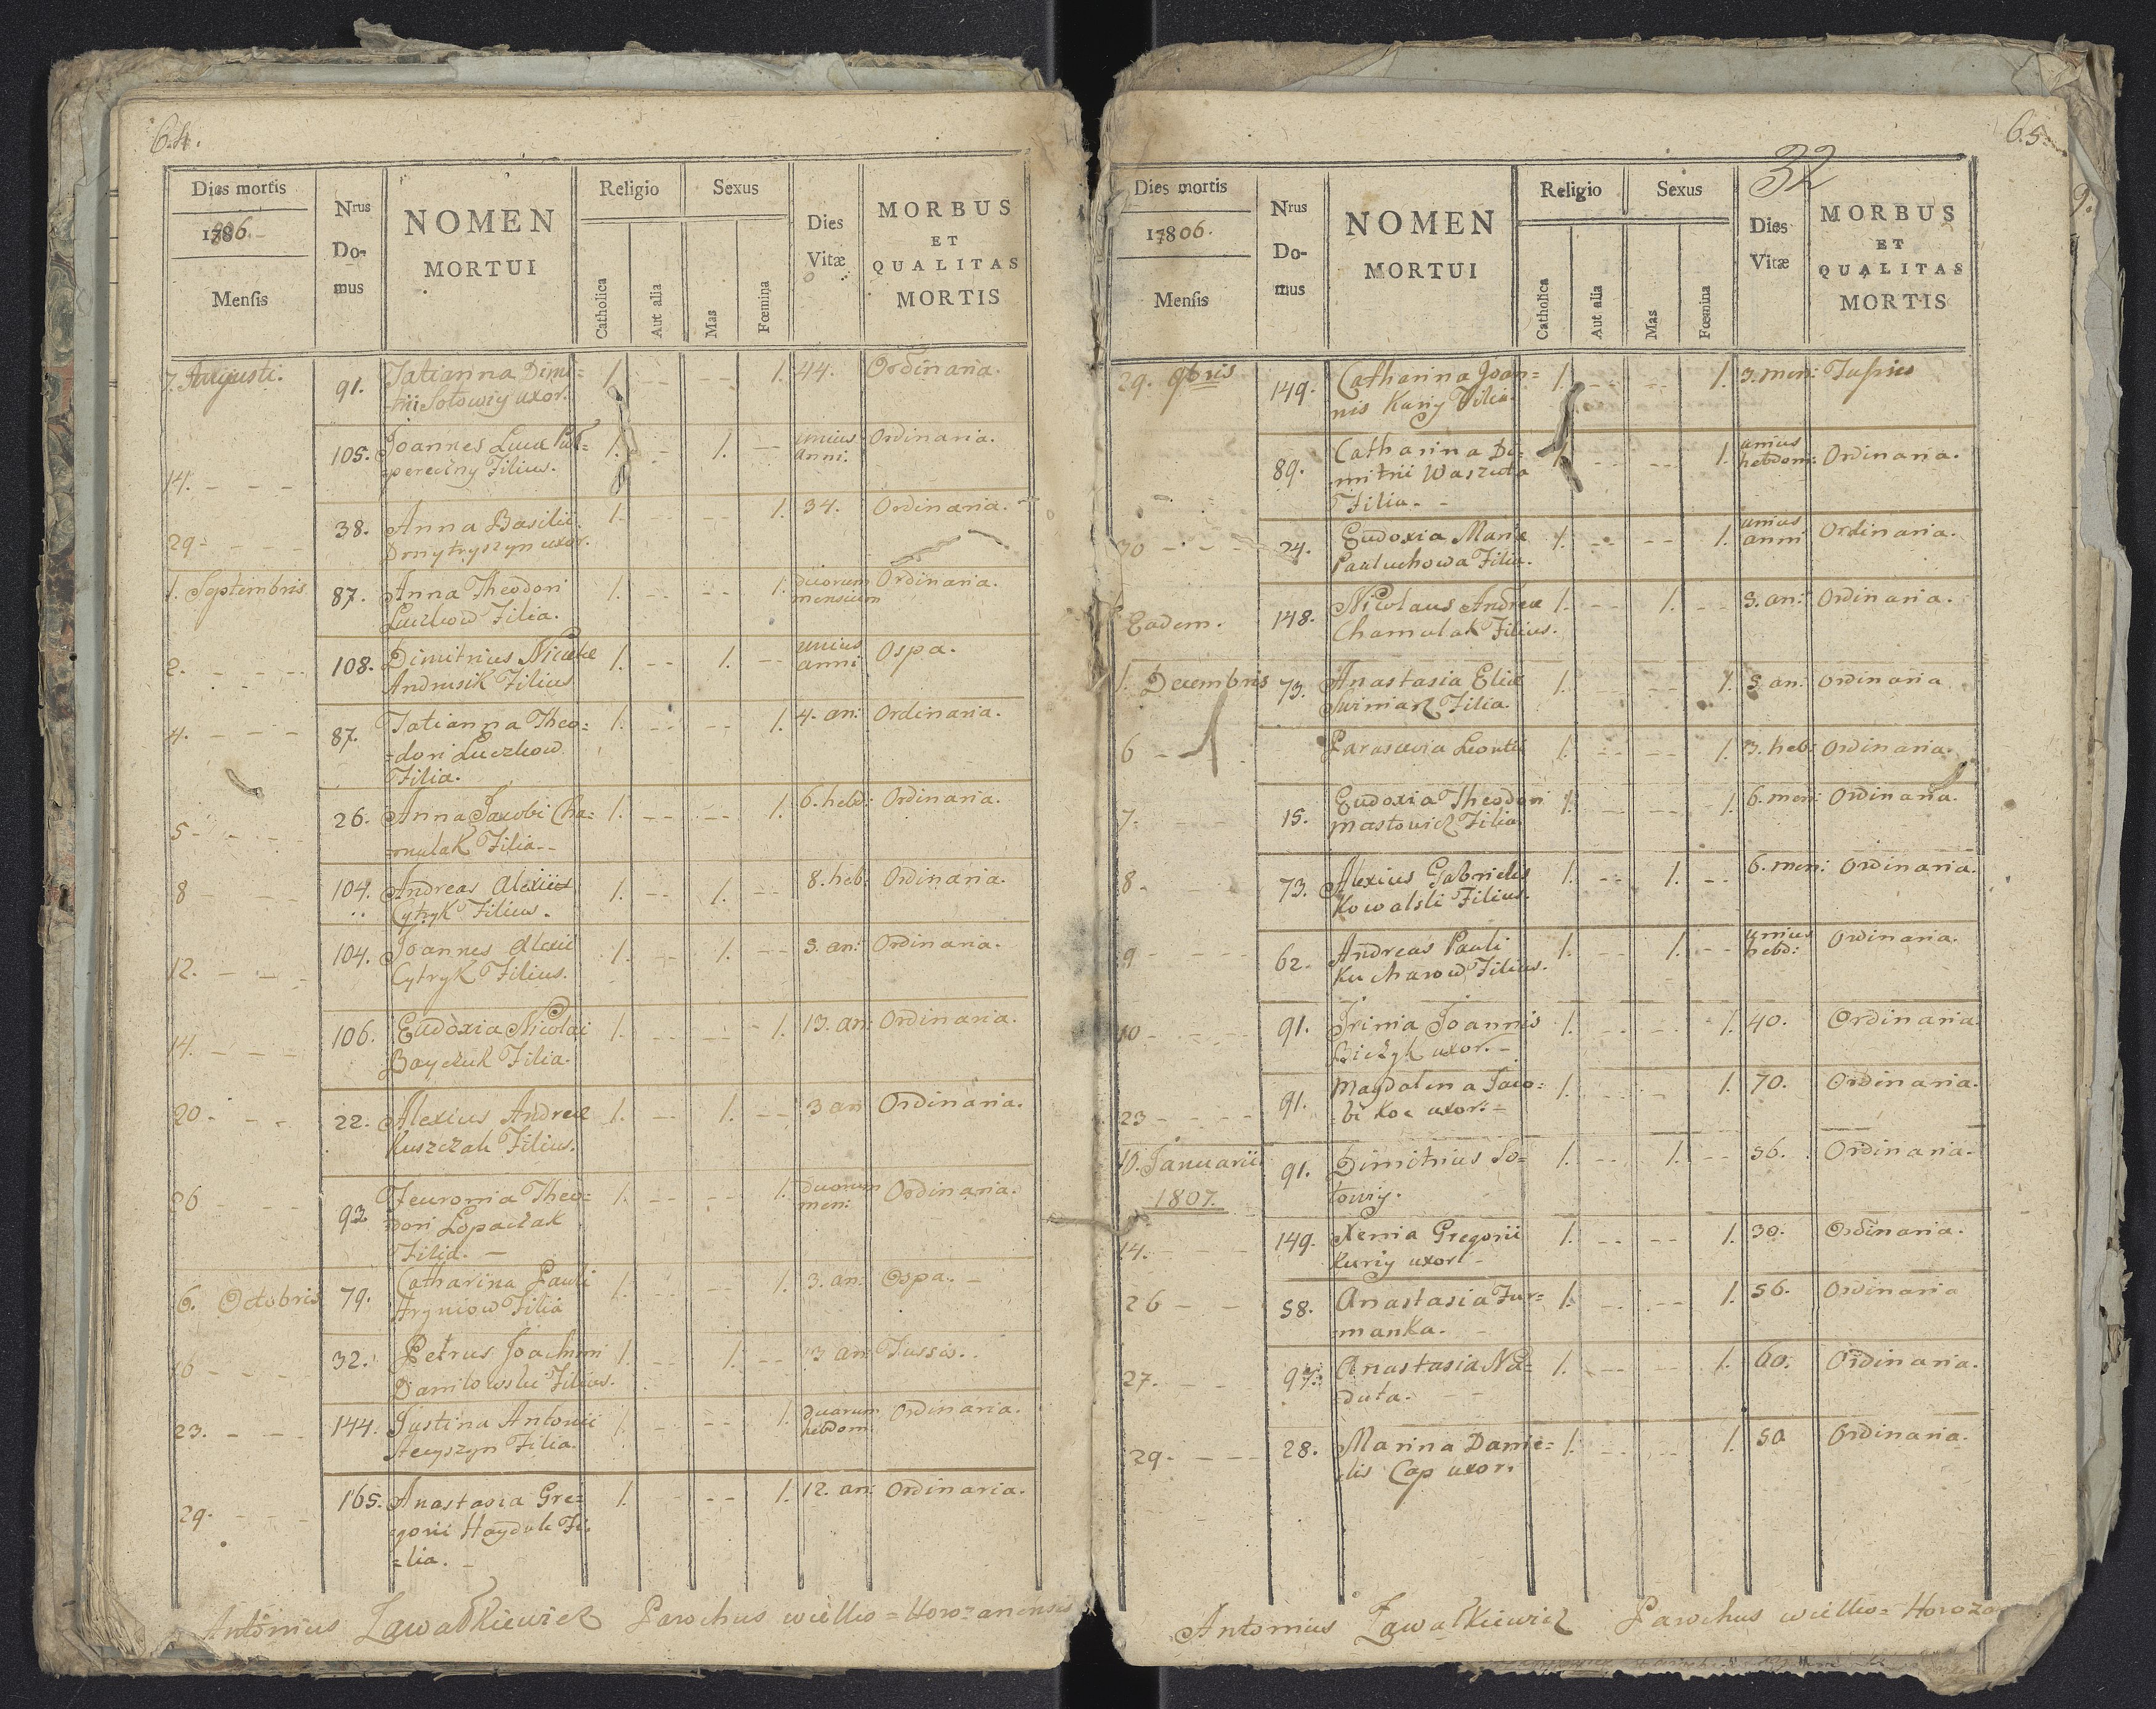 64.
Dies mortis
1786.
1806.
Mensis
Nrus
Do-
mus
NOMEN
MORTUI
Religio
Catholica
Aut alia
Sexus
Mas
Fœmina
Dies
Vitæ
MORBUS
ET
QUALITAS
MORTIS
7. Augusti. 91. Tatianna Dimi= 1. -- -- 1. 44. Ordinaria.
=trii Sotowiy uxor.
14. - - - 105. Joannes Lucæ 1. -- 1. -- unius Ordinaria.
anni.
=pereczny Filius.
29- - - - 38. Anna Basilii 1. -- -- 1. 34. Ordinaria.
Dmytryszyn uxor.
1. Septembris 87. Anna Theodori 1. -- -- 1. duorum Ordinaria.
mensium
Luczkow Filia.
2. - - - 108. Dimitrius Nicolae 1. -- 1. -- unius Ospa.
anni
Andrusik Filius
4. - - - 87. Tatianna Theo= 1. -- -- 1. 4. an: Ordinaria.
=dori Luczkow
Filia.
5- - - 26. Anna Jacobi Cha= 1. -- -- 1. 6. hebd: Ordinaria.
=mulak Filia--
8 - - - 104. Andreas Alexii 1. -- 1. -- 8. heb: Ordinaria.
Cytryk Filius.
12. - - - 104. Joannes Alexii 1. -- 1. -- 3. an: Ordinaria.
Cytryk Filius.
14. - - - 106. Eudoxia Nicolai 1. -- -- 1. 13. an: Ordinaria.
Bayczuk Filia.
20- - - 22. Alexius Andreæ 1. -- 1. -- 3 an Ordinaria.
Kuszczak Filius.
26 - - - 93 Feuronia Theo= 1. -- -- 1. duorum Ordinaria.
men:
=dori Lopaczak
Filia. -
6. Octobris 79. Catharina Pauli 1. -- -- 1. 3. an: Ospa. -
Hryniow Filia
16 - - - 32. Petrus Joachimi 1. -- 1. -- 3 an Tussis.
Danilowski Filius.
23. - - - 144. Justina Antonii 1. -- -- 1. duarum Ordinaria.
hebdom:
Stecyszyn Filia.
29. - - - 165. Anastasia Gre= 1. -- -- 1. 12. an: Ordinaria.
=gorii Hayduk Fi=
=lia. -
Antonius Lawatkiewicz Parochus wielko=Horozanensis
65
32
Dies mortis
17806.
Mensis
Nrus
Do-
mus
NOMEN
MORTUI
Religio
Catholica
Aut alia
Sexus
Mas
Fœmina
Dies
Vitæ
MORBUS
ET
QUALITAS
MORTIS
29. 9bris 149. Catharina Joan= 1. -- -- 1. 3. men: Tussis
nis Kuriy Filia.
89. Catharina Di= 1. -- -- 1. unius
hebdom: Ordinaria.
=mitrii Waszuta
Filia. -
30 - - - 24. Eudoxia Mariæ 1. -- -- 1. unius
anni Ordinaria.
Pauluchowa Filia.
Eadem. 148. Nicolaus Andreæ 1. -- 1. -- 3. an: Ordinaria.
Chamulak Filius.
1. Decembris 73. Anastasia Eliæ 1. -- -- 1. 3 an: Ordinaria
Swiniarz Filia.
6 - - Parascevia Leontii 1. -- -- 1. 3. heb: Ordinaria.
7. - - - 15. Eudoxia Theodori 1. -- -- 1. 6. men: Ordinaria.
Mastowicz Filia.
8- - - 73. Alexius Gabrielis 1. -- 1. -- 6. men: Ordinaria.
Kowalski Filius.
9 - - - 62. Andreas Pauli 1. -- 1. -- unius
hebd: Ordinaria.
Kucharow Filius.
10 - - - 91. Irinia Joannis 1. -- -- 1. 40. Ordinaria.
uxor. -
23 - - - 91. Magdalena Jaco= 1. -- -- 1. 70. Ordinaria.
=bi Koc uxor. -
10. Januarii 91. Dimitrius So= 1. -- 1. -- 56. Ordinaria.
1807. towiy.
14. - - - 149. Xenia Gregorii 1. -- -- 1. 30. Ordinaria.
Kuriy uxor -
26 - - 58. Anastasia Fur= 1. -- -- 1. 56. Ordinaria
=manka. -
27. - - Anastasia Na= 1. -- -- 1. 60. Ordinaria.
=duta. - -
29. - - - 28. Marina Danie= 1. -- -- 1. 50 Ordinaria.
=lis Cap uxor.
Antonius Lawatkiewicz Parochus wielko=